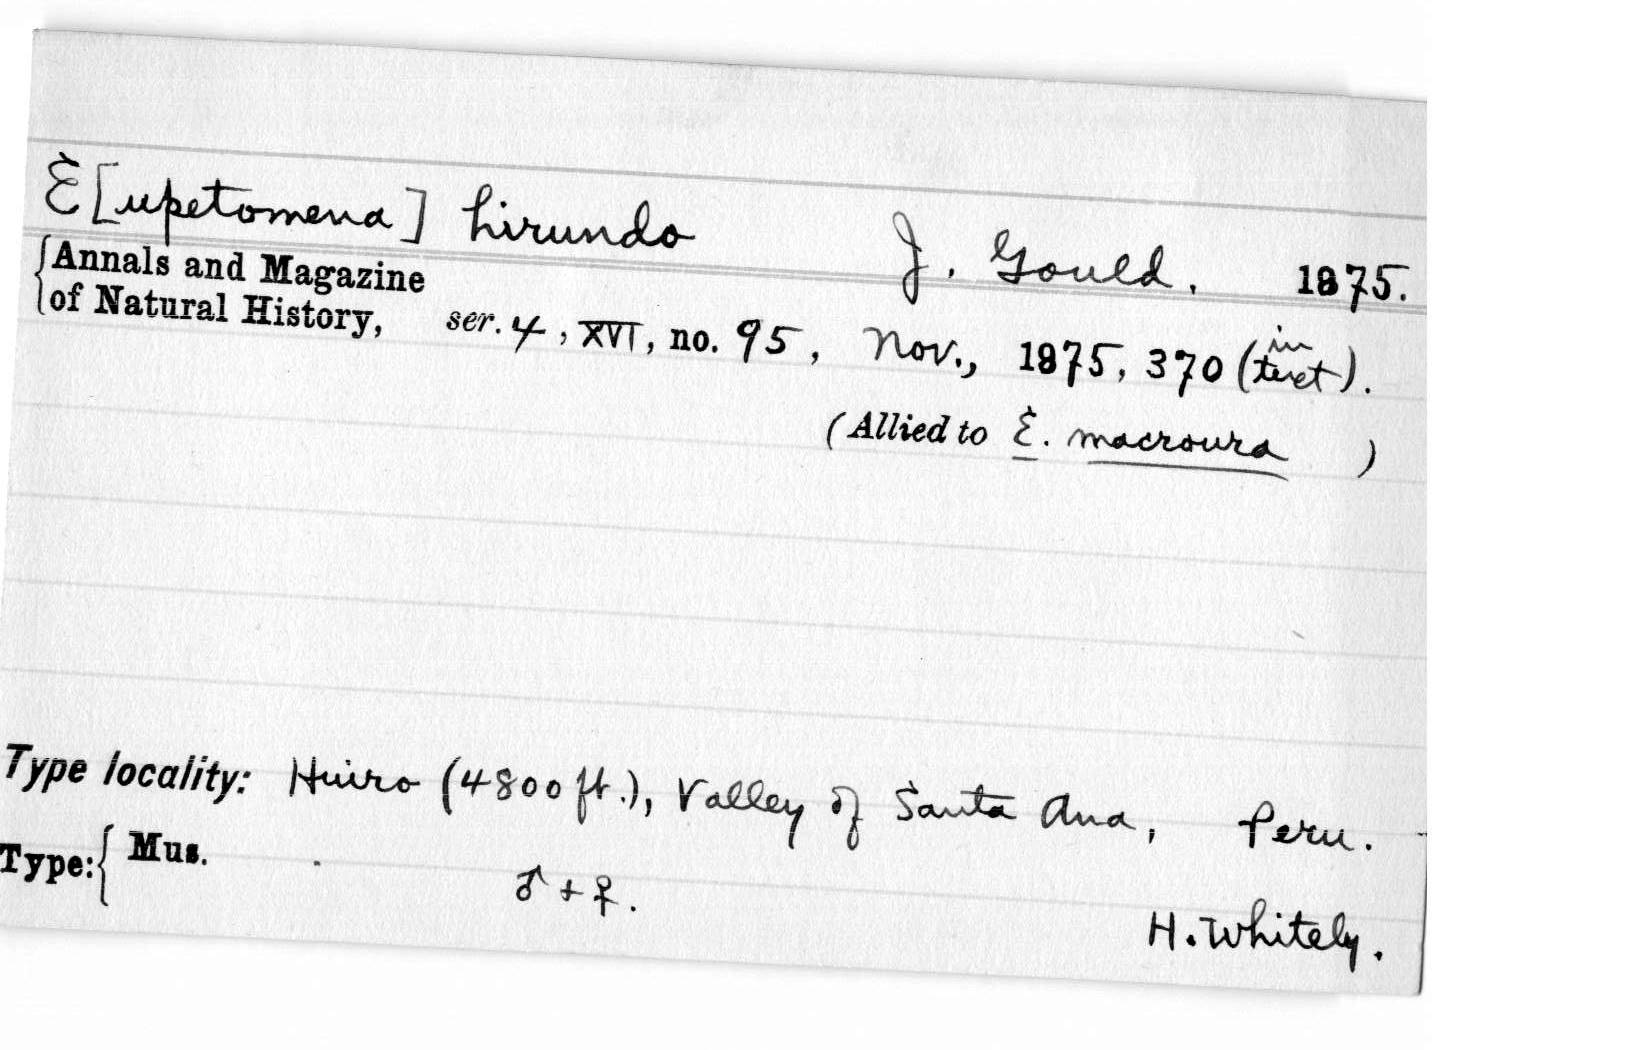 E[upetomena] hirundo J. Gould. 1875.
{Annals and Magazine
of Natural History, ser. 4, XVI, no. 95, Nov., 1875, 370 (in text).
(Allied to E. macroura )
Type locality: Huiro (4800 ft.), Valley of Santa Ana, Peru.
Type:{ Mus. ♂ + ♀.
H. Whitely.